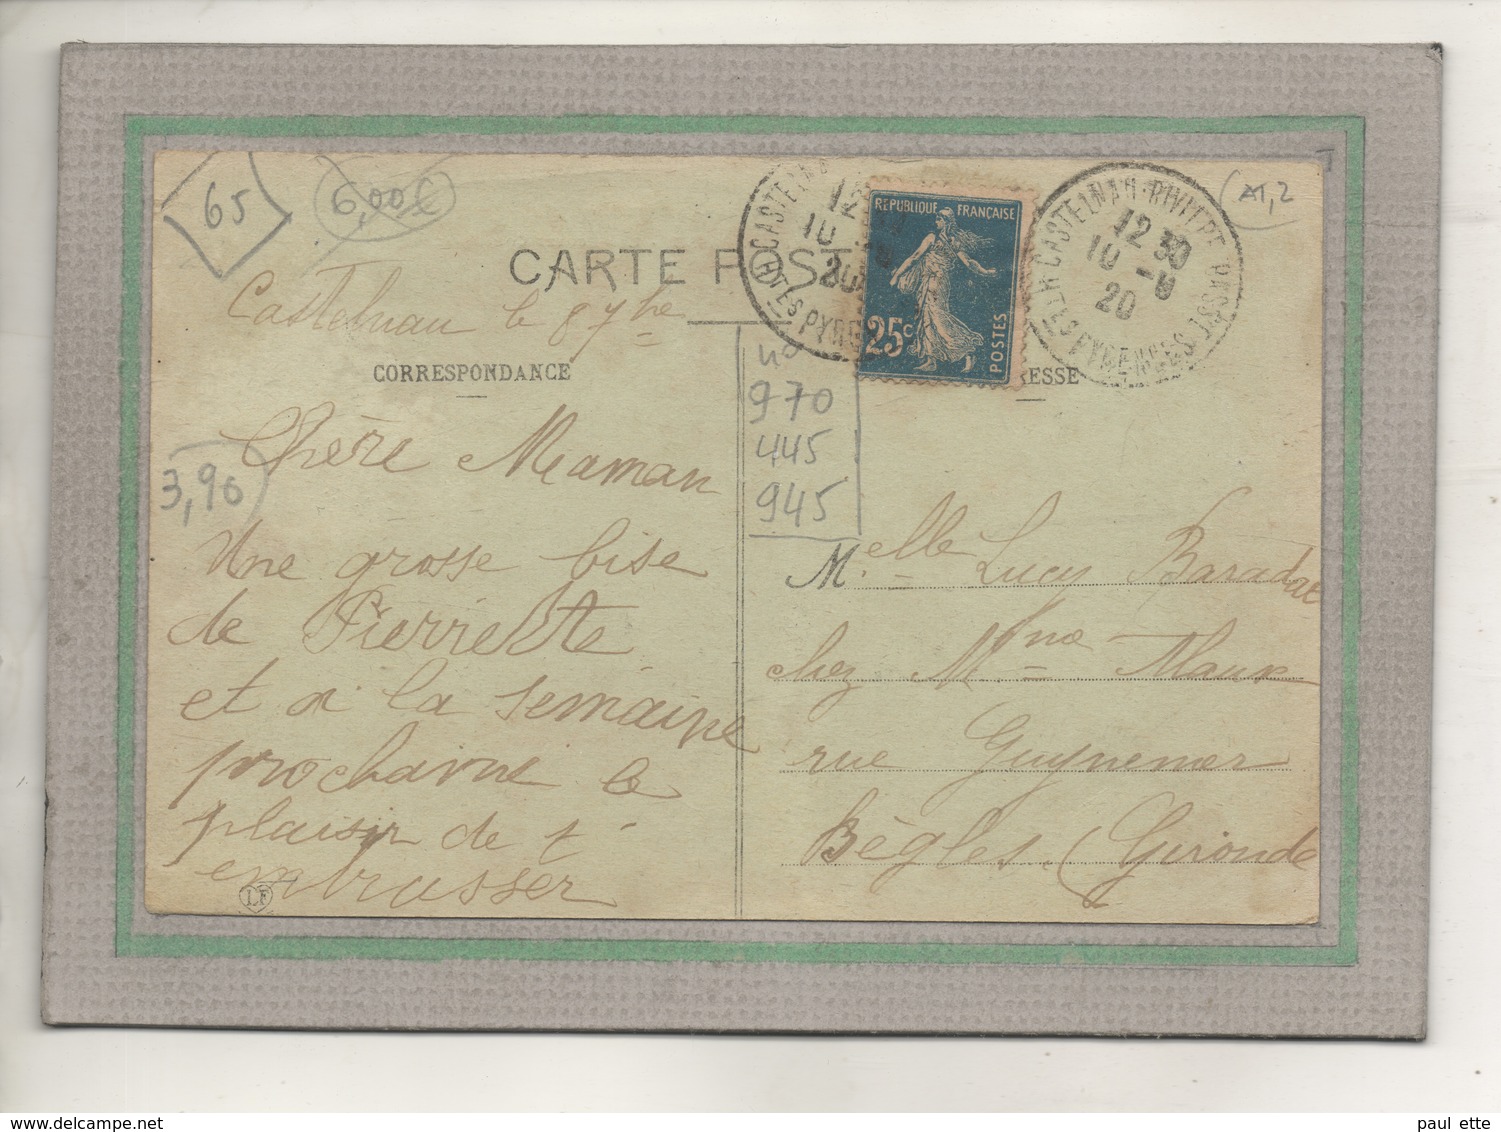 65
6,00€
CARTE POSTALE
Castelnau le 8 7bre
CORRESPONDANCE
Chère Maman
Une grosse bise
de Pierrette
et à la semaine
prochaine le
plaisir de t'
embrasser
LF
3,90
970
445
945
CASTELNAU
HTES PYRE
12
10
20
REPUBLIQUE FRANÇAISE
25c
POSTES
CASTELNAU-RIVIERE BASSE
12 30
10 -9
20
HTES PYRENEES
RESSE
Melle Lucy Baradat
chez Mme
rue Guynemer
Bègles (Gironde
paul ette